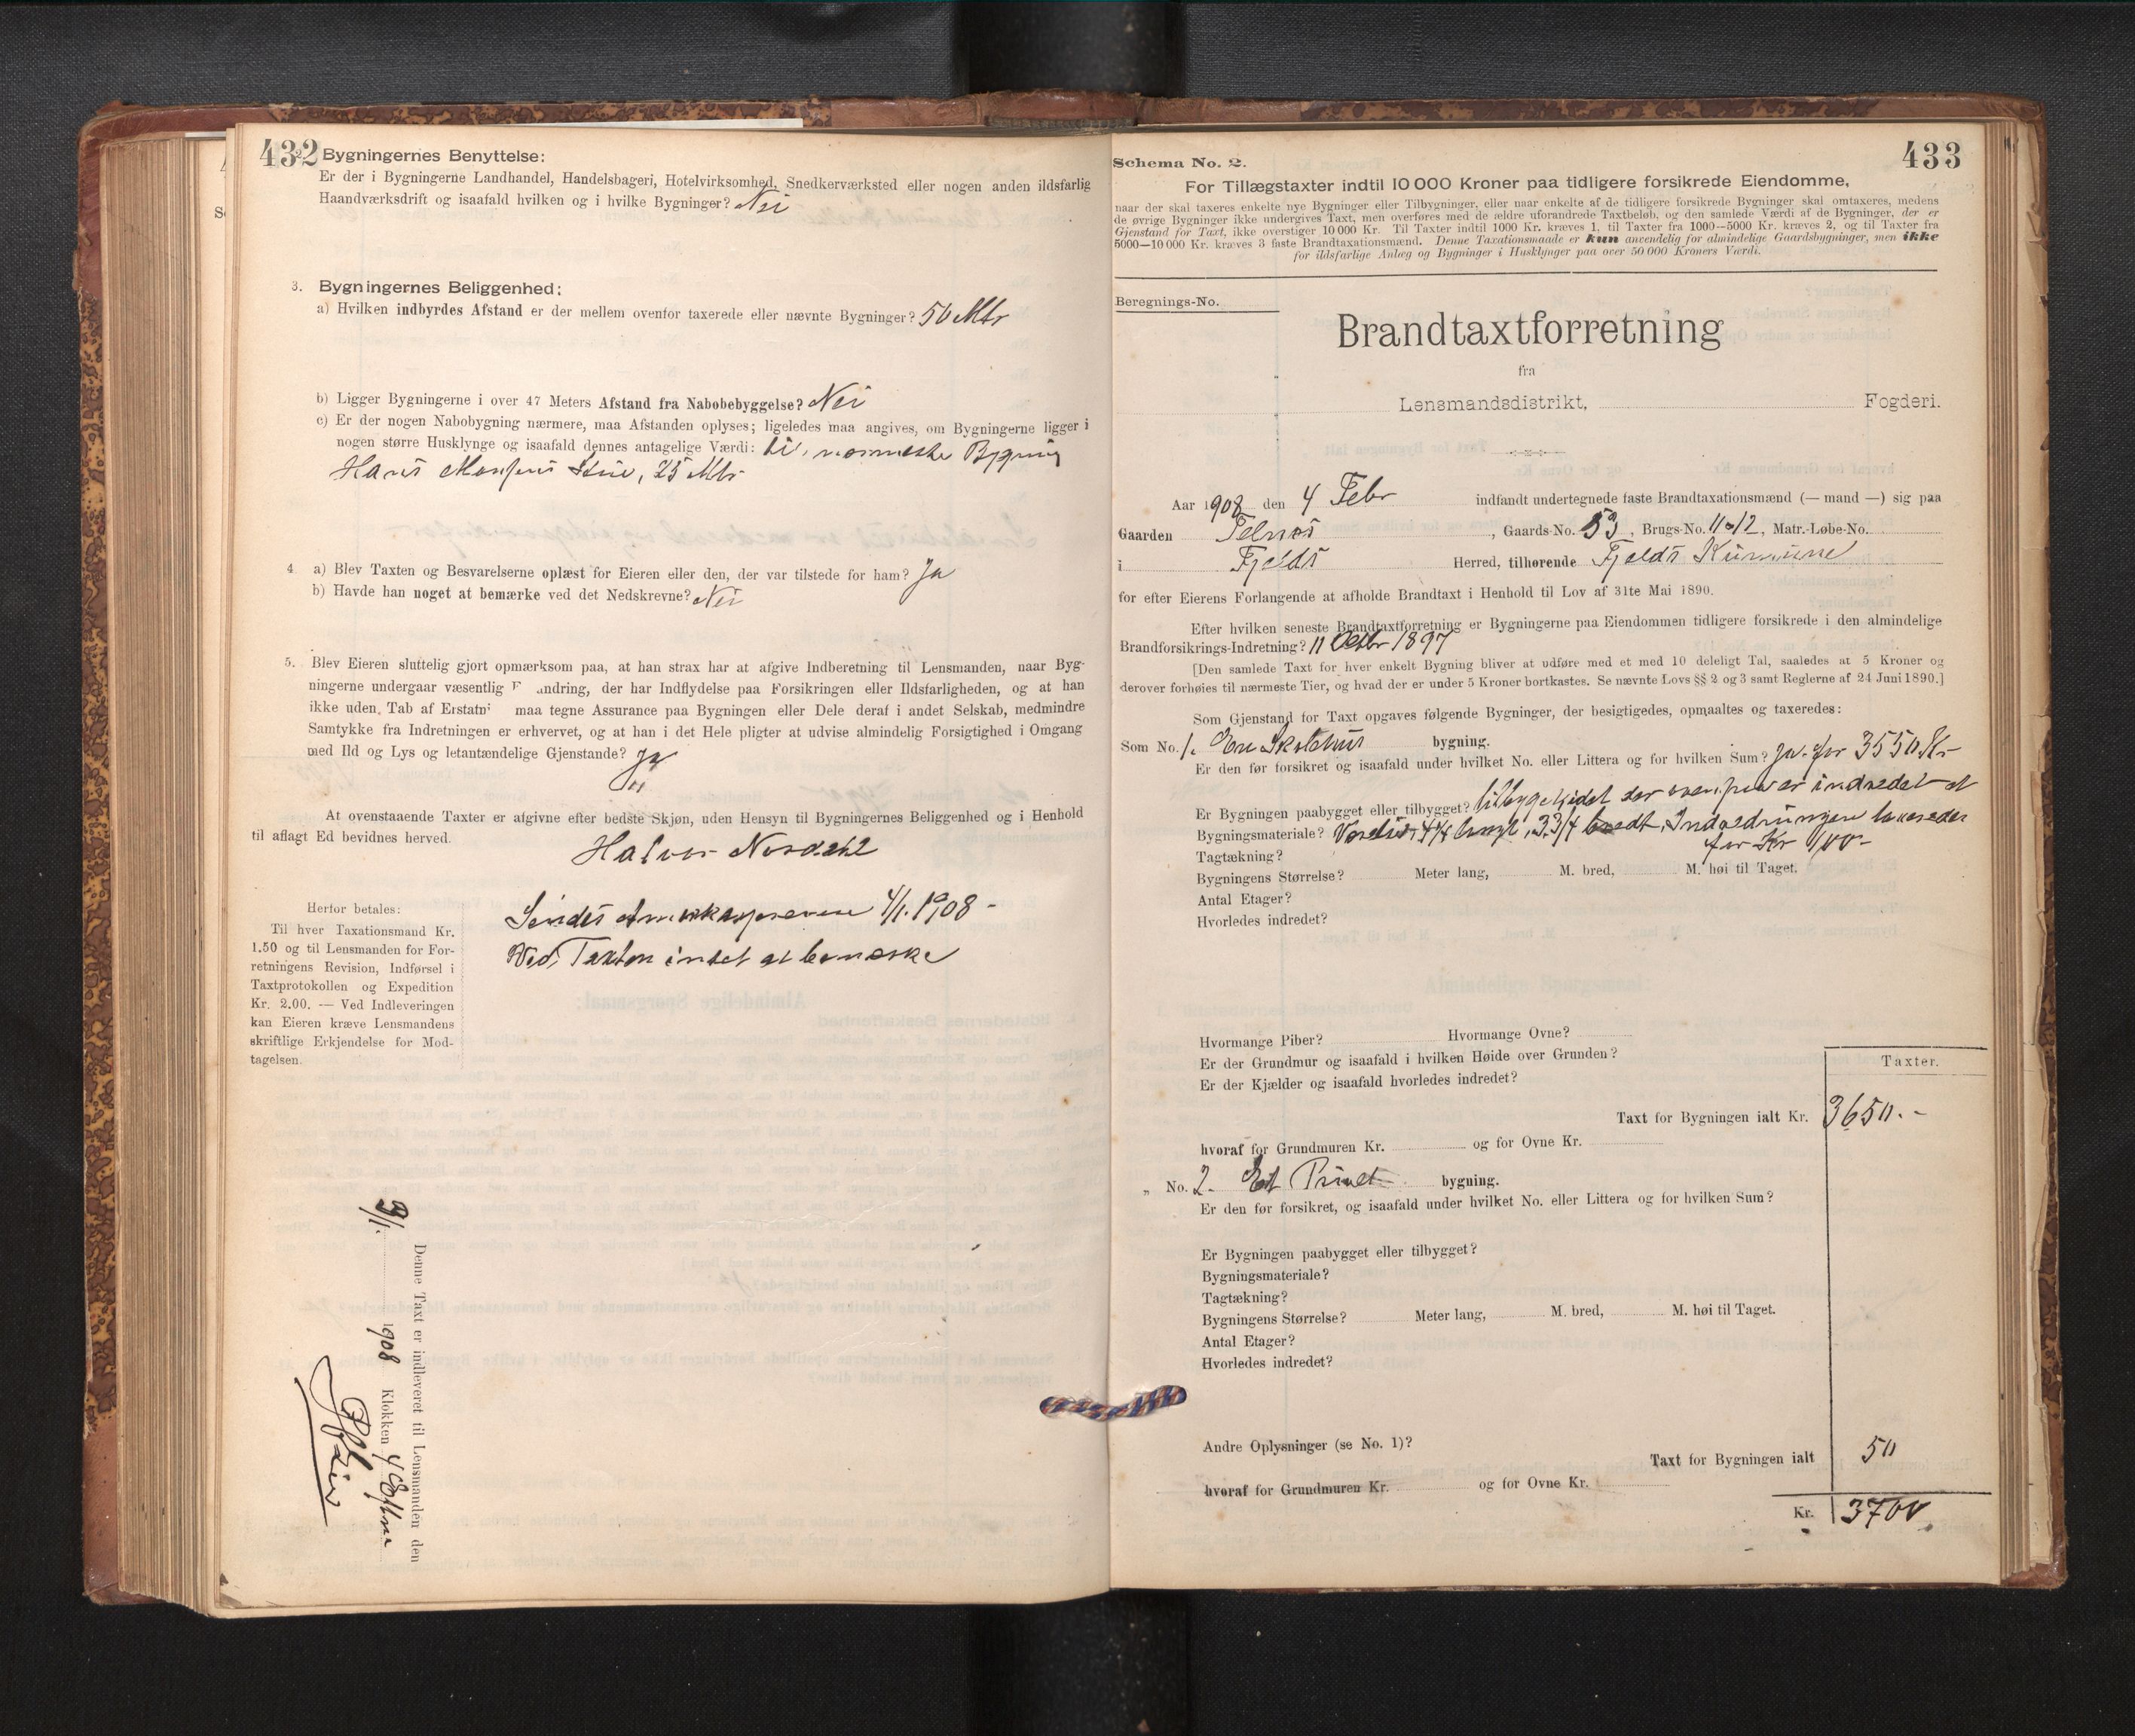 432 Bygningernes Benyttelse:
Er der i Bygningerne Landhandel, Handelsbageri, Hotelvirksomhed, Snedkerværksted eller nogen anden ildsfarlig
Haandværksdrift og isaafald hvilken og i hvilke Bygninger? Nei
3. Bygningernes Beliggenhed:
a) Hvilken indbyrdes Afstand er der mellem ovenfor taxerede eller nævnte Bygninger? 50 Mtr
b) Ligger Bygningerne i over 47 Meters Afstand fra Nabobebyggelse? Nei
c) Er der nogen Nabobygning nærmere, maa Afstanden oplyses; ligeledes maa angives, om Bygningerne ligger i
nogen større Husklynge og isaafald dennes antagelige Værdi: nærmeste Bygning
Hans 25 Mtr
4 a) Blev Taxten og Besvarelserne oplæst for Eieren eller den, der var tilstede for ham? Ja
b) Havde han noget at bemærke ved det Nedskrevne? Nei
5. Blev Eieren sluttelig gjort opmærksom paa, at han strax har at afgive Indberetning til Lensmanden, naar Byg-
ningerne undergaar væsentlig F andring, der har Indflydelse paa Forsikringen eller Ildsfarligheden, og at han
ikke uden Tab af Erstatn maa tegne Assurance paa Bygningen eller Dele deraf i andet Selskab, medmindre
Samtykke fra Indretningen er erhvervet, og at han i det Hele pligter at udvise almindelig Forsigtighed i Omgang
med Ild og Lys og letantændelige Gjenstande? Ja
At ovenstaaende Taxter er afgivne efter bedste Skjøn, uden Hensyn til Bygningernes Beliggenhed og i Henhold
til aflagt Ed bevidnes herved.
Halvor Nordahl
Herfor betales:
Til hver Taxationsmand Kr.
1.50 og til Lensmanden for For-
retningens Revision, Indførsel i
Taxtprotokollen og Expedition
Kr. 2.00. — Ved Indleveringen
kan Eieren kræve Lensmandens
skriftlige Erkjendelse for Mod-
tagelsen.
Sendes 4/1. 1908 -
Ved Taxten intet at bemærke
Denne Taxt er indleveret til Lensmanden den
3/1. 1908 Klokken 4 Eftm
Schema No. 2. 433
For Tillægstaxter indtil 10 000 Kroner paa tidligere forsikrede Eiendomme,
naar der skal taxeres enkelte nye Bygninger eller Tilbygninger, eller naar enkelte af de tidligere forsikrede Bygninger skal omtaxeres, medens
de øvrige Bygninger ikke undergives Taxt, men overføres med de ældre uforandrede Taxtbeløb, og den samlede Værdi af de Bygninger, der er
Gjenstand for Taxt, ikke overstiger 10 000 Kr. Til Taxter indtil 1000 Kr. kræves 1, til Taxter fra 1000—5000 Kr. kræves 2, og til Taxter fra
5000—10 000 Kr. kræves 3 faste Brandtaxationsmænd. Denne Taxationsmaade er kun anvendelig for almindelige Gaardsbygninger, men ikke
for ildsfarlige Anlæg og Bygninger i Husklynger paa over 50 000 Kroners Værdi.
Beregnings-No.
Brandtaxtforretning
fra
Lensmandsdistrikt, Fogderi.
Aar 1908 den 4 Febr indfandt undertegnede faste Brandtaxationsmænd (— mand —) sig paa
Gaarden Telnes, Gaards-No. 53, Brugs-No. 11 & 12, Matr.-Løbe-No.
i Fjelds Herred, tilhørende Fjelds Kommune
for efter Eierens Forlangende at afholde Brandtaxt i Henhold til Lov af 31te Mai 1890.
Efter hvilken seneste Brandtaxtforretning er Bygningerne paa Eiendommen tidligere forsikrede i den almindelige
Brandforsikrings-Indretning? 11 Octbr 1897
[Den samlede Taxt for hver enkelt Bygning bliver at udføre med et med 10 deleligt Tal, saaledes at 5 Kroner og
derover forhøies til nærmeste Tier, og hvad der er under 5 Kroner bortkastes. Se nævnte Lovs §§ 2 og 3 samt Reglerne af 24 Juni 1890.]
Som Gjenstand for Taxt opgaves følgende Bygninger, der besigtigedes, opmaaltes og taxeredes:
Som No. 1. En Skolehus bygning.
Er den før forsikret og isaafald under hvilket No. eller Littera og for hvilken Sum? Ja for 3550 Kr
Er Bygningen paabygget eller tilbygget? der ovenpaa er indredet et
Bygningsmateriale? Værelse, 4 1/4 langt, 3 3/4 bredt, Indredningen taxeredes
for Kr 100-
Tagtækning?
Bygningens Størrelse? Meter lang, M. bred, M. høi til Taget.
Antal Etager?
Hvorledes indredet?
Hvormange Piber? Hvormange Ovne?
Er der Grundmur og isaafald i hvilken Høide over Grunden?
Er der Kjælder og isaafald hvorledes indredet?
Taxter.
Taxt for Bygningen ialt Kr. 3650.-
hvoraf for Grundmuren Kr. og for Ovne Kr.
„ No. 2. Et Privet bygning.
Er den før forsikret, og isaafald under hvilket No. eller Littera og for hvilken Sum?
Er Bygningen paabygget eller tilbygget?
Bygningsmateriale?
Tagtækning?
Bygningens Størrelse? Meter lang, M. bred, M. høi til Taget.
Antal Etager?
Hvorledes indredet?
Andre Oplysninger (se No. 1)?
Taxt for Bygningen ialt 50
hvoraf for Grundmuren Kr. og for Ovne Kr.
Kr. 3700